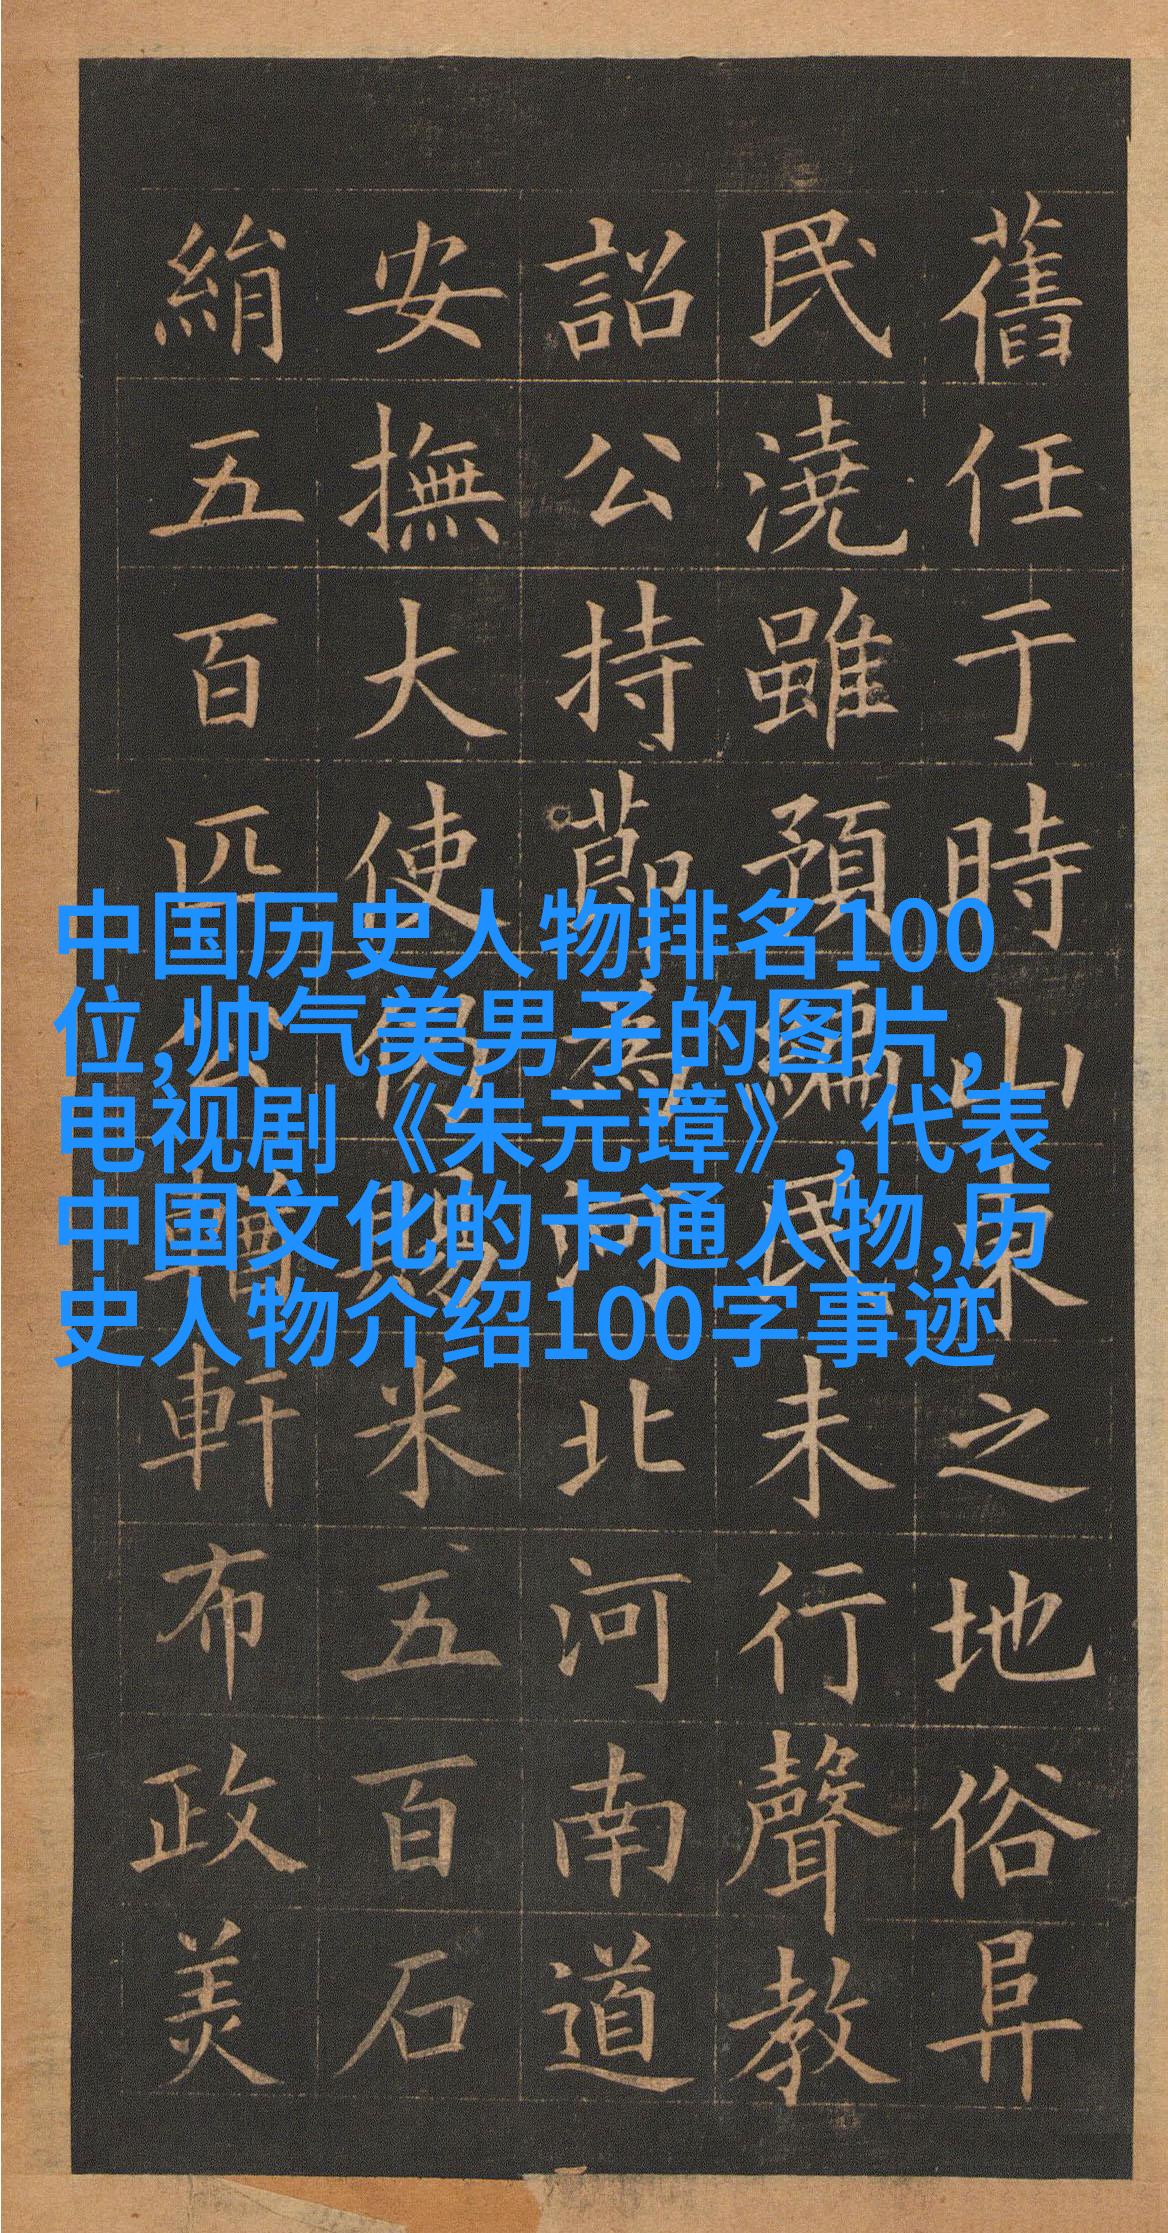 舊任于時山東之地俗阜
民澆雖預編民未行聲教
詔公持節為河北河南道
安撫大使仍賜米五百石
絹五百匹公輶軒布政美
中国历史人物排名100
位,帅气美男子的图片,
电视剧《朱元璋》,代表
中国文化的卡通人物,历
史人物介绍100字事迹